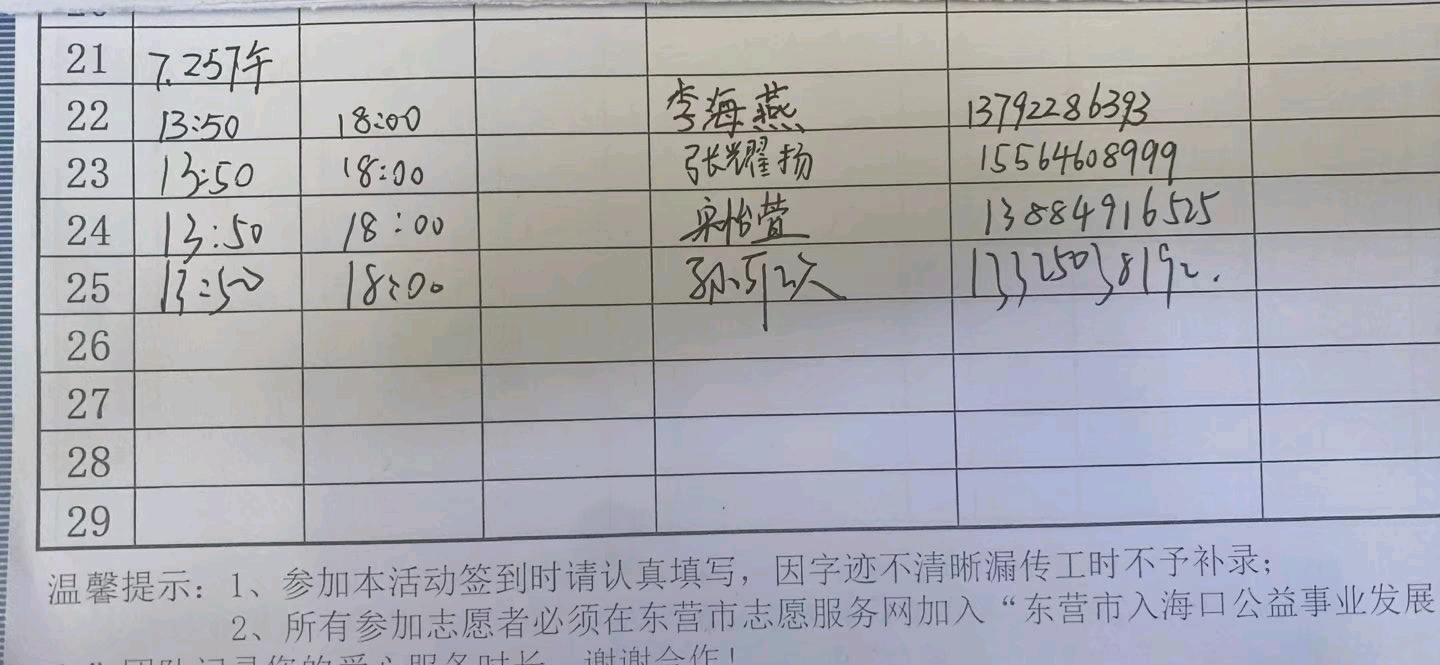 21 7.25下午
22 13:50 18:00 李海燕 13792286393
23 13:50 18:00 张耀扬 15564608999
24 13:50 18:00 宋怡萱 13884916525
25 13:50 18:00 孙 13325038192.
26
27
28
29
温馨提示：1、参加本活动签到时请认真填写，因字迹不清晰漏传工时不予补录；
2、所有参加志愿者必须在东营市志愿服务网加入“东营市入海口公益事业发展
”团队记录您的爱心服务时长，谢谢合作！